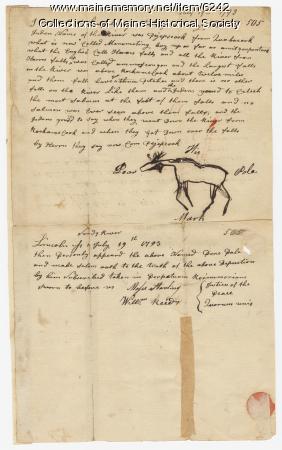 www.mainememory.net/item/6242
Collections of Maine Historical Society
505
Indian Name of the River was Pejepscook from Quabacook
what is now Called Merrymeeting Bay up as far as Amitgonpontook
what the English Call Harris falls and all the River from
Harris falls was Called ammoscongon and the Largest falls
on the River was above Rockamecook about twelve miles
and them falls have and there is no other
falls on the River Like them and the Indans yousd to Catech
the most Salmon at the foot of them falls and
Salmon was Ever seen above them falls, and the
Indans yousd to say when they went Down the River from
Rockamecook and when they got Down over the falls
by Harris they say now Com Pejepscook
His
Deas Dela
Mark
Sandy River
505
Lincoln ss July 19th 1793
then Personly appeared the above Named Deas Dela
and made Solem oath to the truth of the above Deposition
by him Subscribed taken in Perpetuam Rei memoriam
Sworn to before us Moses Starling
Willm Read
Justices of the
Peace
Quorum unis